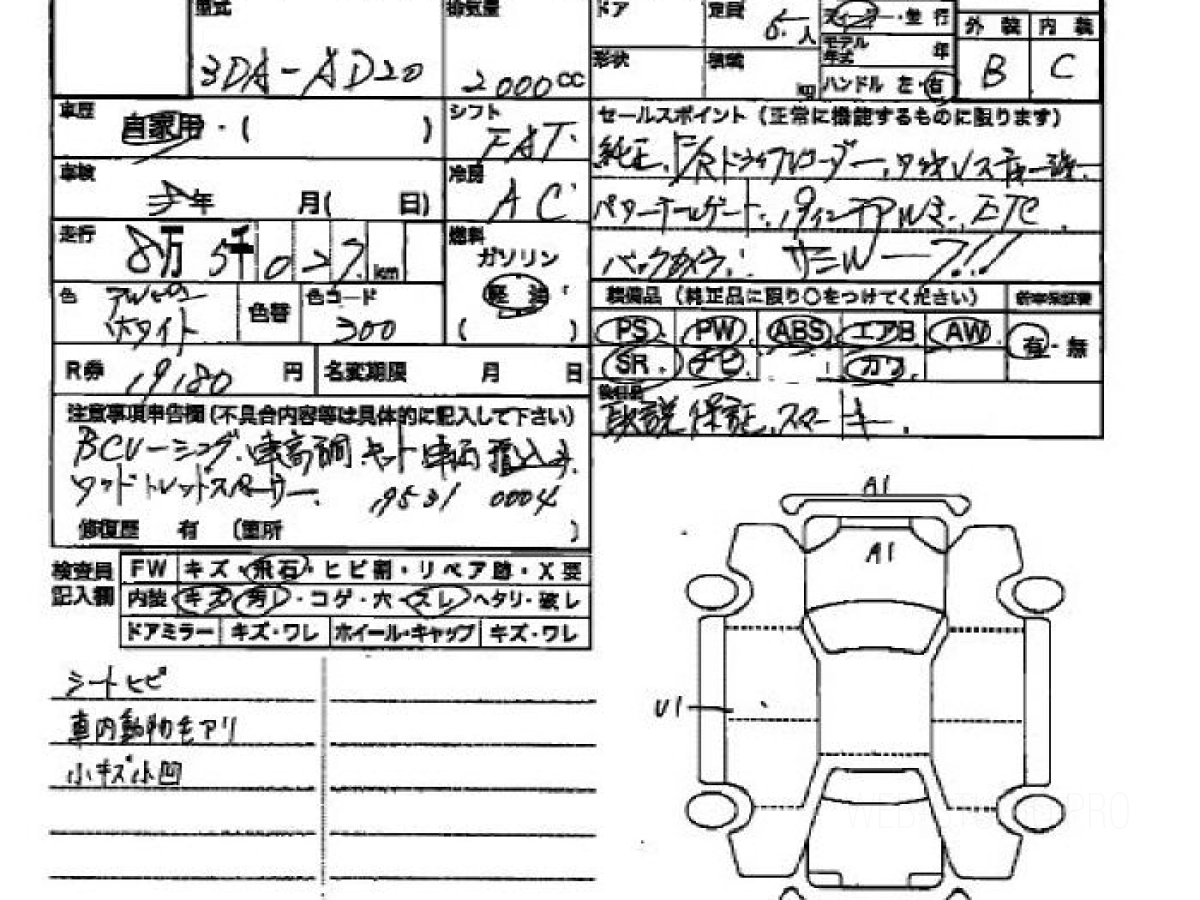 型式 排気量 ドア 定員 5.人 ディーラー・並行 外装 内装
3DA-AD20 2000cc 形状 積載 kg モデル年式 年 B C
ハンドル 左・右
車歴 自家用・( ) シフト FAT セールスポイント(正常に機能するものに限ります)
純正、F/Rドライブレコーダー、ワイヤレス充電
車検 年 月( 日) 冷房 AC パワーテールゲート、19インチアルミ、ETC
走行 8万5千027km 燃料 ガソリン 軽油 ( )
バックカメラ、サンルーフ!!
色 ホワイト 色替 色コード 300 装備品(純正品に限り○をつけてください) 新車保証書
PS PW ABS エアB AW 有・無
SR ナビ カワ
R券 19,180 円 名変期限 月 日 後日品
取説 保証、スマートキー
注意事項申告欄(不具合内容等は具体的に記入して下さい)
BCレーシング、車高調キット
ワイドトレッドスペーサー、19531 0004
修復歴 有 (箇所 )
検査員記入欄 FW キズ・飛石・ヒビ割・リペア跡・X要
内装 キズ 汚レ・コゲ・穴・スレ ヘタリ・破レ
ドアミラー キズ・ワレ ホイール・キャップ キズ・ワレ
シートヒビ
車内動物毛アリ
小キズ小凹
A1
A1
U1